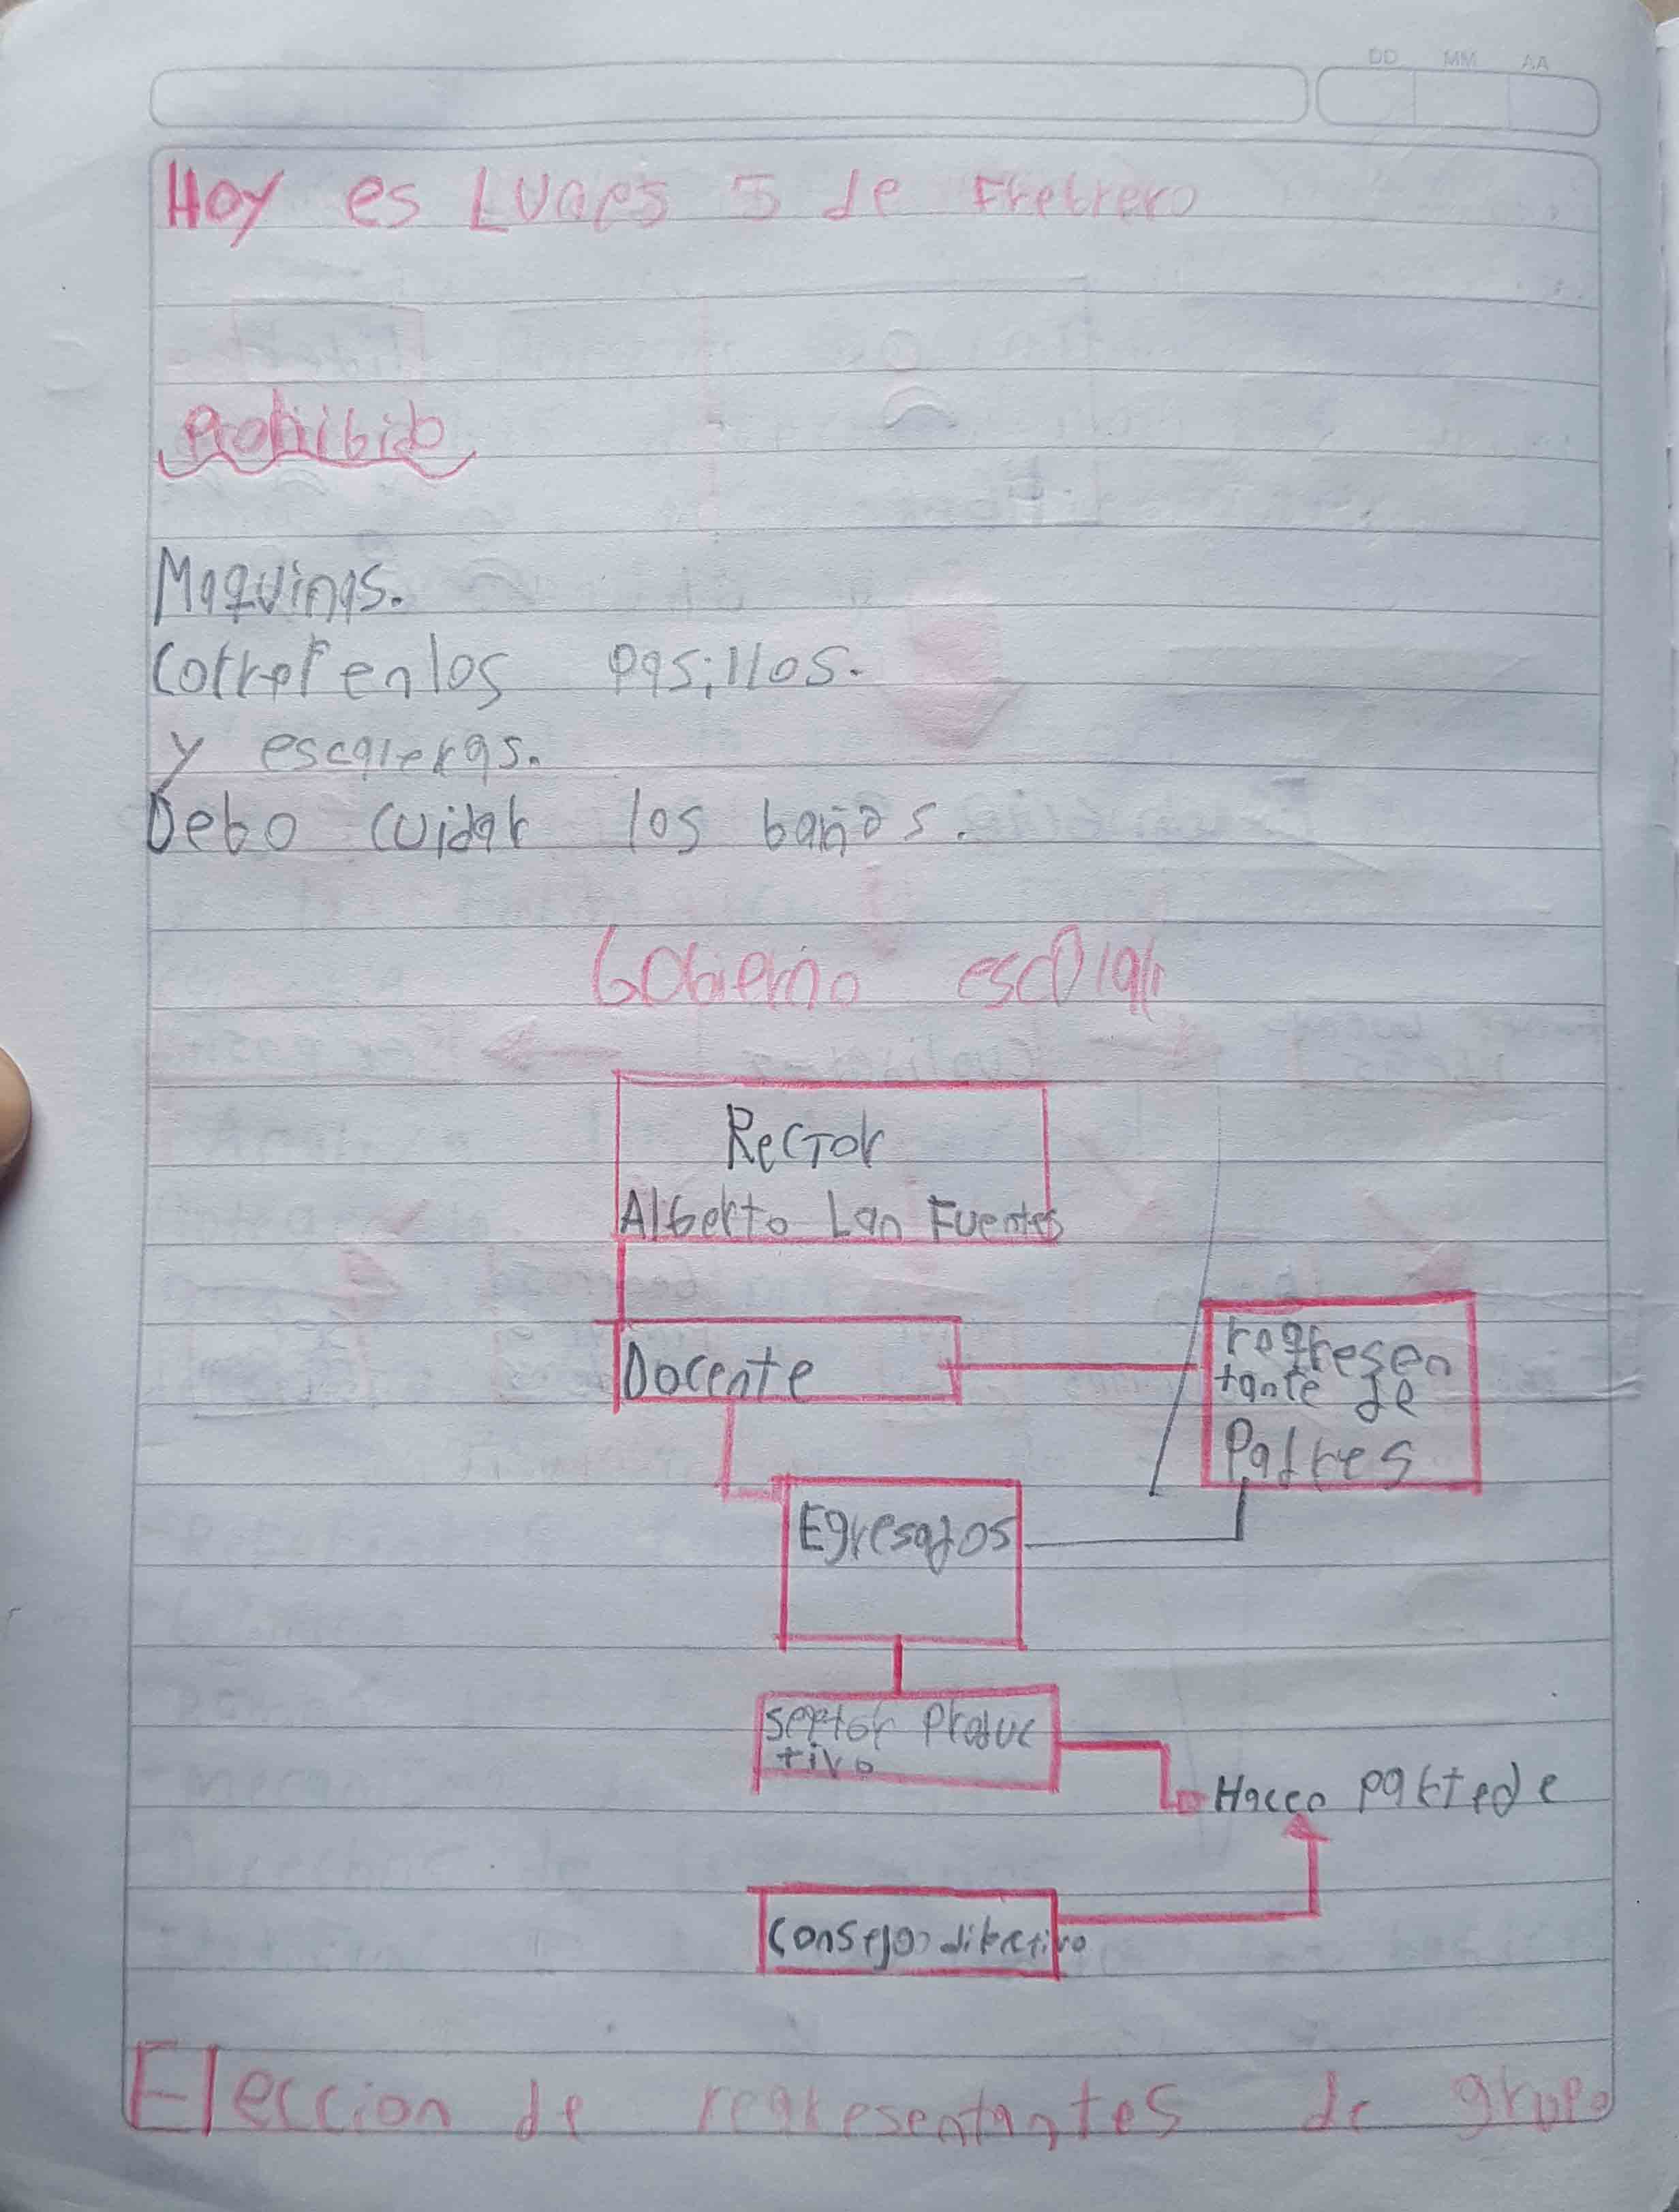 DD MM AA
Hoy es Lunes 5 de Frebrero
Prohibido
Maquinas.
Correr en los pasillos.
y escaleras.
Debo cuidar los baños.
Gobierno escolar
Rector
Alberto Lan Fuentes
Docente
represen
tante de
Padres
Egresados
Septor Produc
tivo
Hacen parte de
Consejo directivo
Eleccion de representantes de grupo